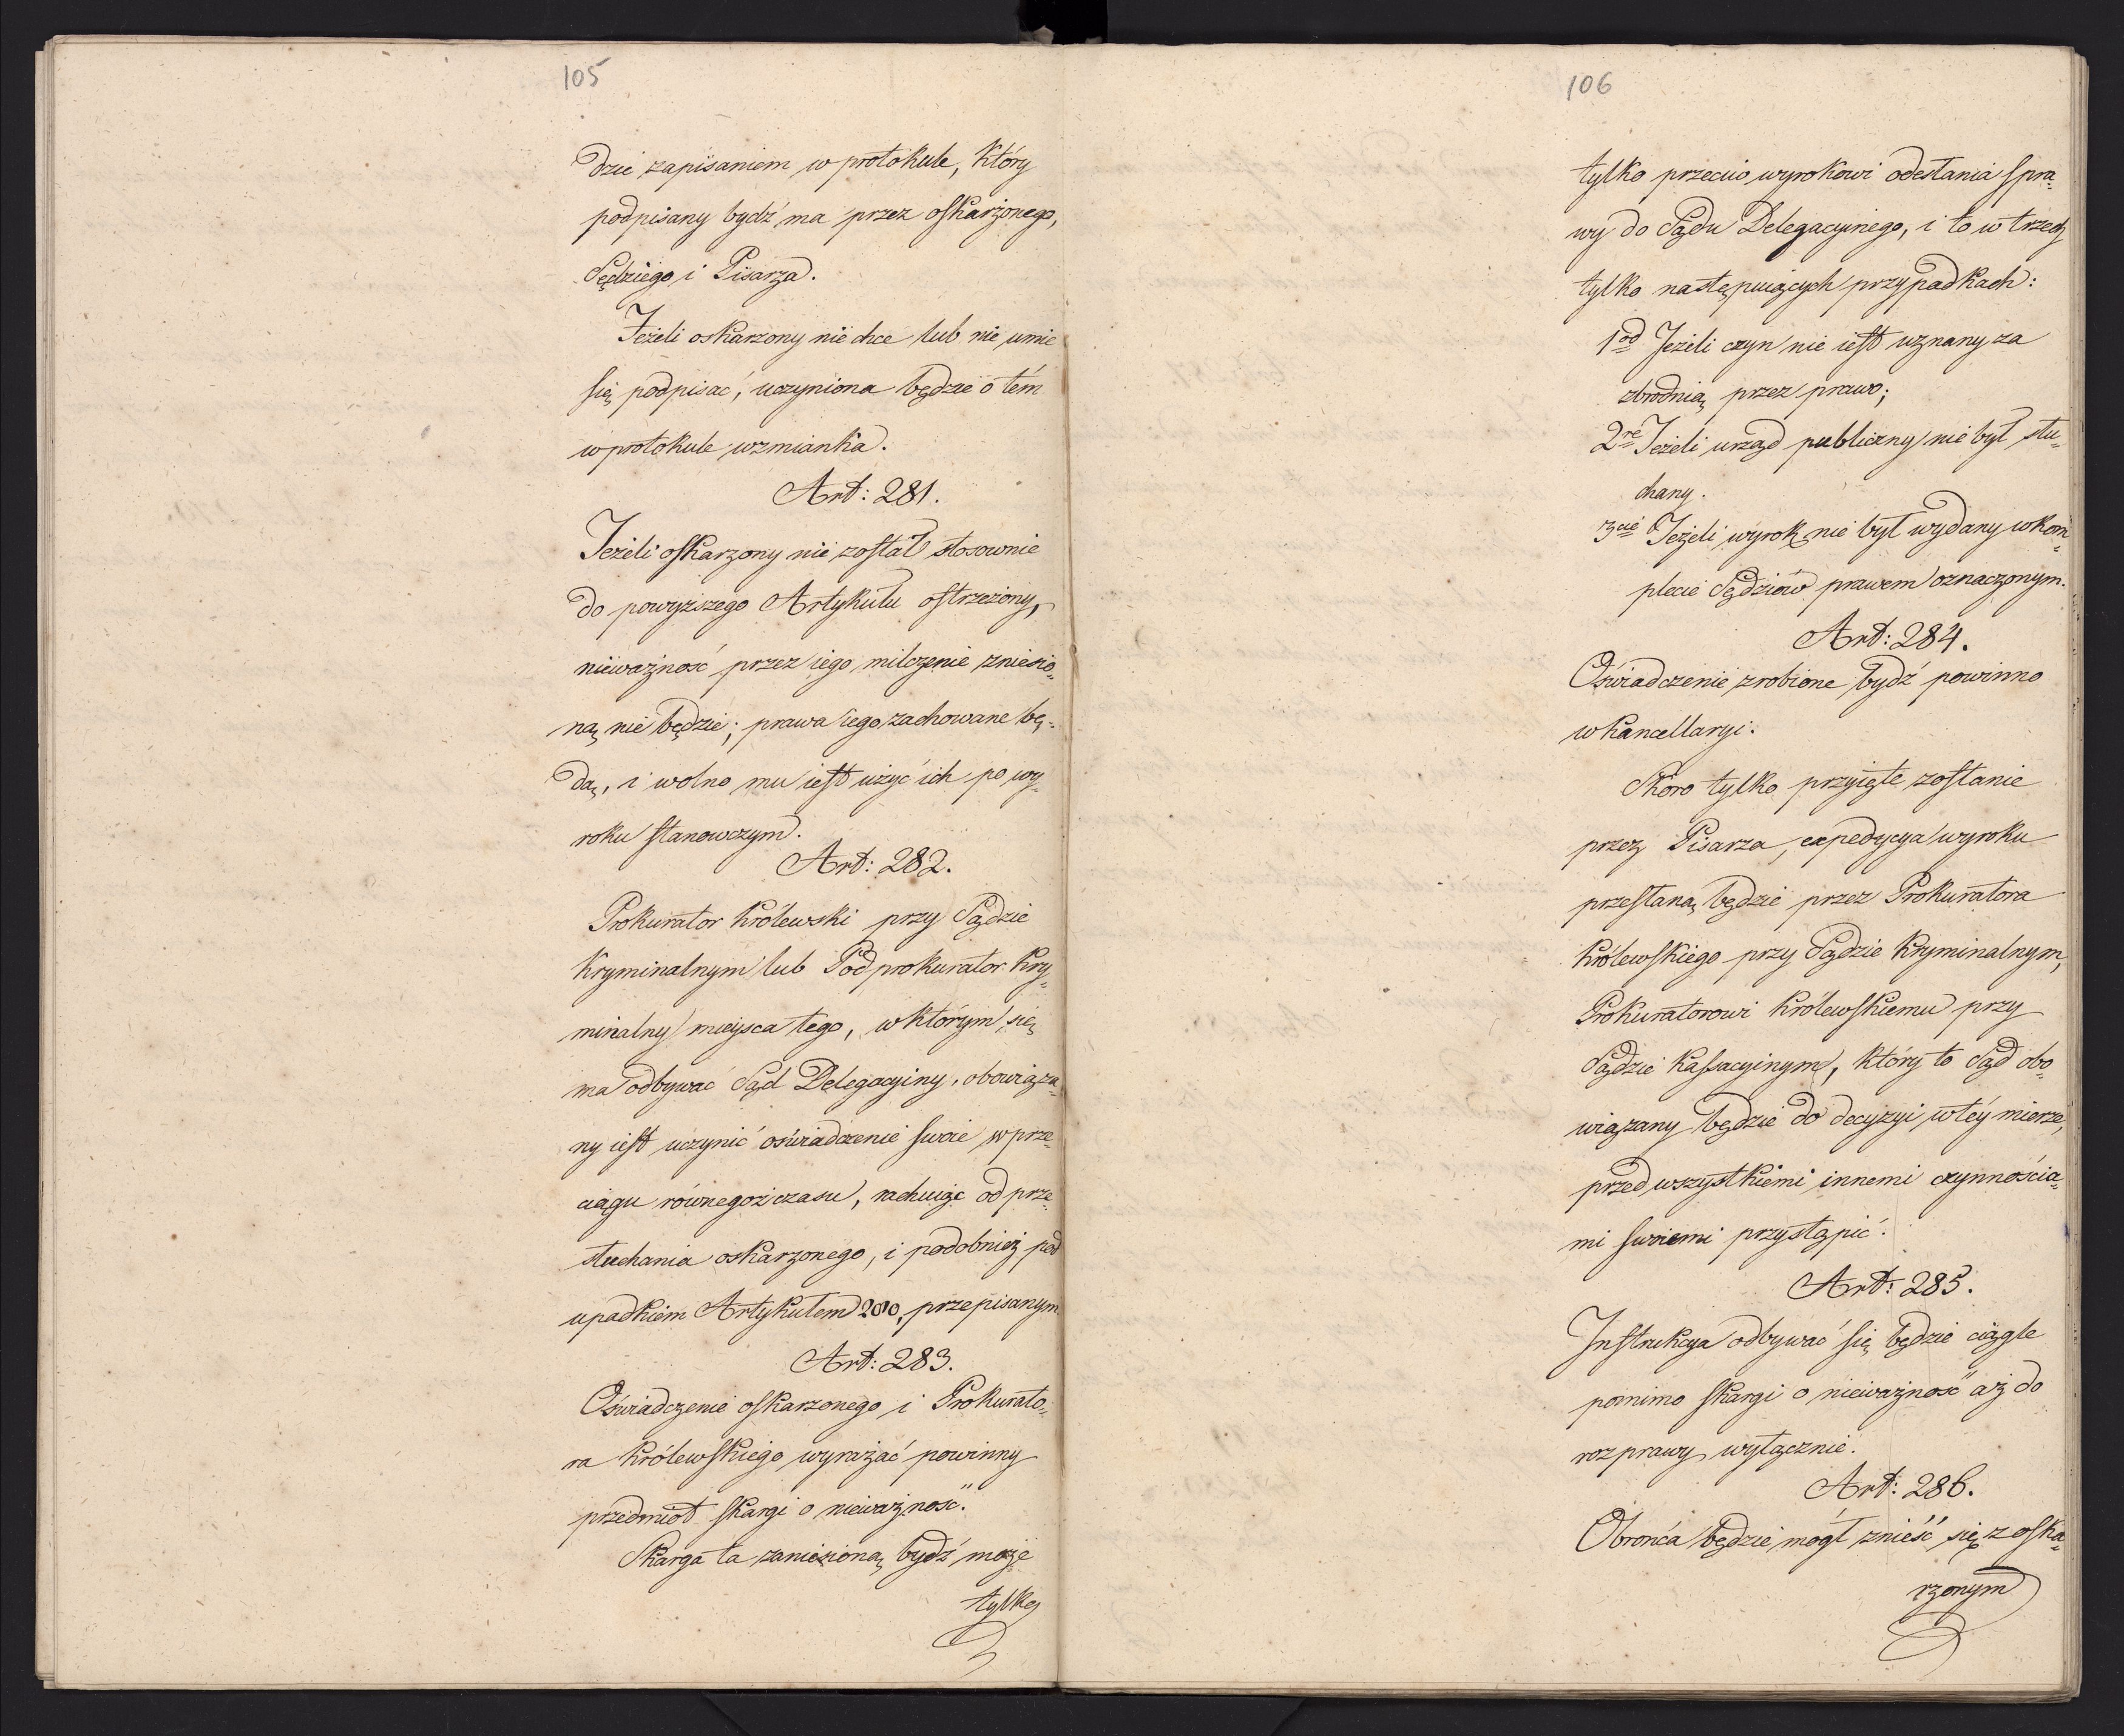 105
dzie zapisaniem w protokule, który
podpisany bydź ma przez oskarżonego,
Sędziego i Pisarza.
Jeżeli oskarzony nie chce lub nie umie
się podpisać, uczyniona będzie o tém
w protokule wzmianka.
Art: 281.
Jeżeli oskarzony nie został stosownie
do powyższego Artykułu ostrzeżony,
nieważność przez iego milczenie zniesio„
ną nie będzie; prawa iego zachowane bę„
dą, i wolno mu iest użyć ich po wy„
roku stanowczym.
Art: 282.
Prokurator Królewski przy Sądzie
Kryminalnym lub Podprokurator Kry„
minalny mieysca tego, w którym się
ma odbywać Sąd Delegacyiny, obowiąza„
ny iest uczynić oświadczenie swoie w prze„
ciągu równegoż czasu, rachuiąc od prze„
słuchania oskarzonego, i podobnież pod
upadkiem Artykułem 280, przepisanym
Art: 283.
Oświadczenie oskarzonego i Prokurato„
ra Królewskiego wyrażać powinny
przedmiot skargi o nieważność.
Skarga ta zaniesioną bydź może
tylko
106
tylko przeciw wyrokowi odesłania spra„
wy do Sądu Delegacyinego, i to w trzech
tylko następuiących przypadkach:
1od Jeżeli czyn nie iest uznany za
zbrodnią przez prawo;
2re Jeżeli urząd publiczny nie był słu„
chany.
3cie Jeżeli wyrok nie był wydany w kom„
plecie Sędziów prawem oznaczonym.
Art: 284.
Oświadczenie zrobione bydź powinno
w Kancellaryi.
Skoro tylko przyięte zostanie
przez Pisarza, expedycya wyroku
przesłaną będzie przez Prokuratora
Królewskiego przy Sądzie Kryminalnym,
Prokuratorowi Królewskiemu przy
Sądzie Kassacyinym, który to Sąd obo„
wiązany będzie do decyzyi w téy mierze,
przed wszystkiemi innemi czynnościa„
mi swoiemi przystąpić.
Art: 285.
Instrukcya odbywać się będzie ciągle
pomimo skargi o nieważność aż do
rozprawy wyłącznie.
Art: 286.
Obrońca będzie mógł znieść się z oska„
rzonym